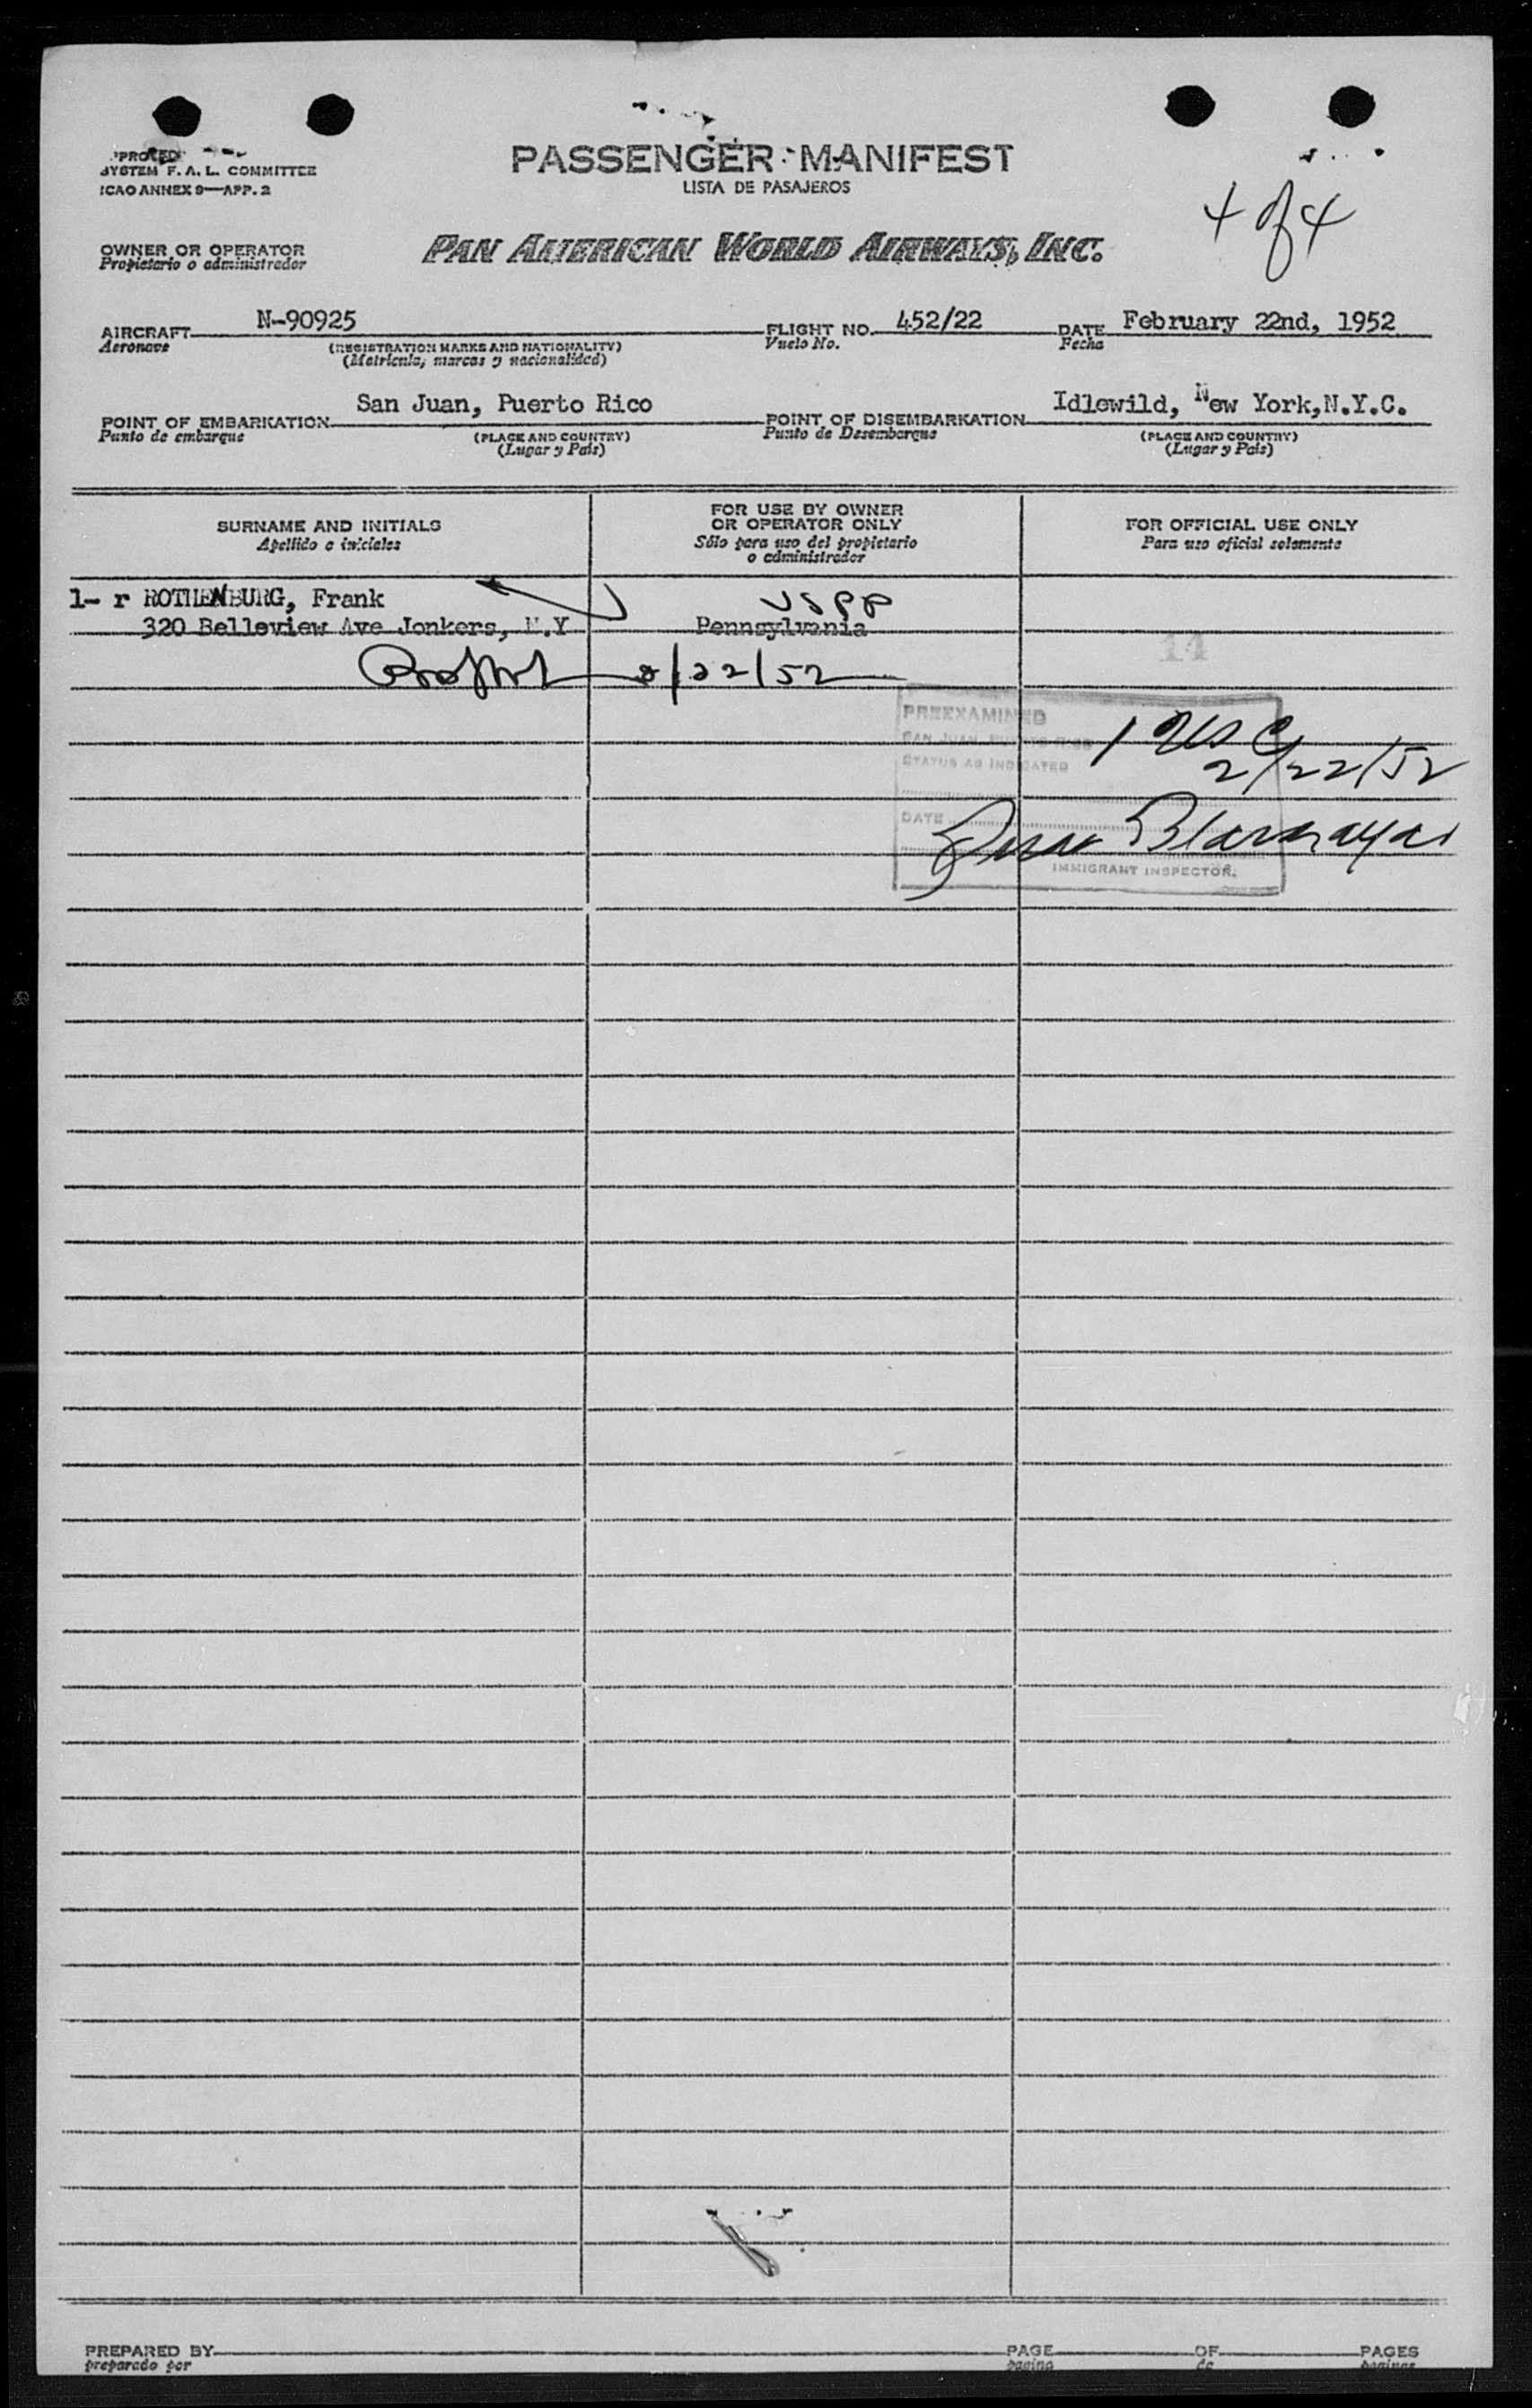 PASSENGER MANIFEST
LISTA DE PASAJEROS
SYSTEM F. A. L. COMMITTEE
ICAO ANNEX 9—APP. 2
4 of 4
OWNER OR OPERATOR
Propietario o administrador
PAN AMERICAN WORLD AIRWAYS, INC.
AIRCRAFT N-90925 FLIGHT NO. 452/22 DATE February 22nd, 1952
Aeronave (REGISTRATION MARKS AND NATIONALITY) Vuelo No. Fecha
(Matricula, marcas y nacionalidad)
POINT OF EMBARKATION San Juan, Puerto Rico POINT OF DISEMBARKATION Idlewild, New York,N.Y.C.
Punto de embarque (PLACE AND COUNTRY) Punto de Desembarque (PLACE AND COUNTRY)
(Lugar y País) (Lugar y País)
SURNAME AND INITIALS
Apellido e iniciales
FOR USE BY OWNER
OR OPERATOR ONLY
Sólo para uso del propietario
o administrador
FOR OFFICIAL USE ONLY
Para uso oficial solamente
1- r ROTHENBURG, Frank USPP
320 Belleview Ave Jonkers, N.Y Pennsylvania
14
2/22/52
PREEXAMINED
SAN JUAN, PUERTO RICO
STATUS AS INDICATED
1 USC
2/22/52
DATE
IMMIGRANT INSPECTOR.
PREPARED BY PAGE OF PAGES
preparado por pagina de paginas